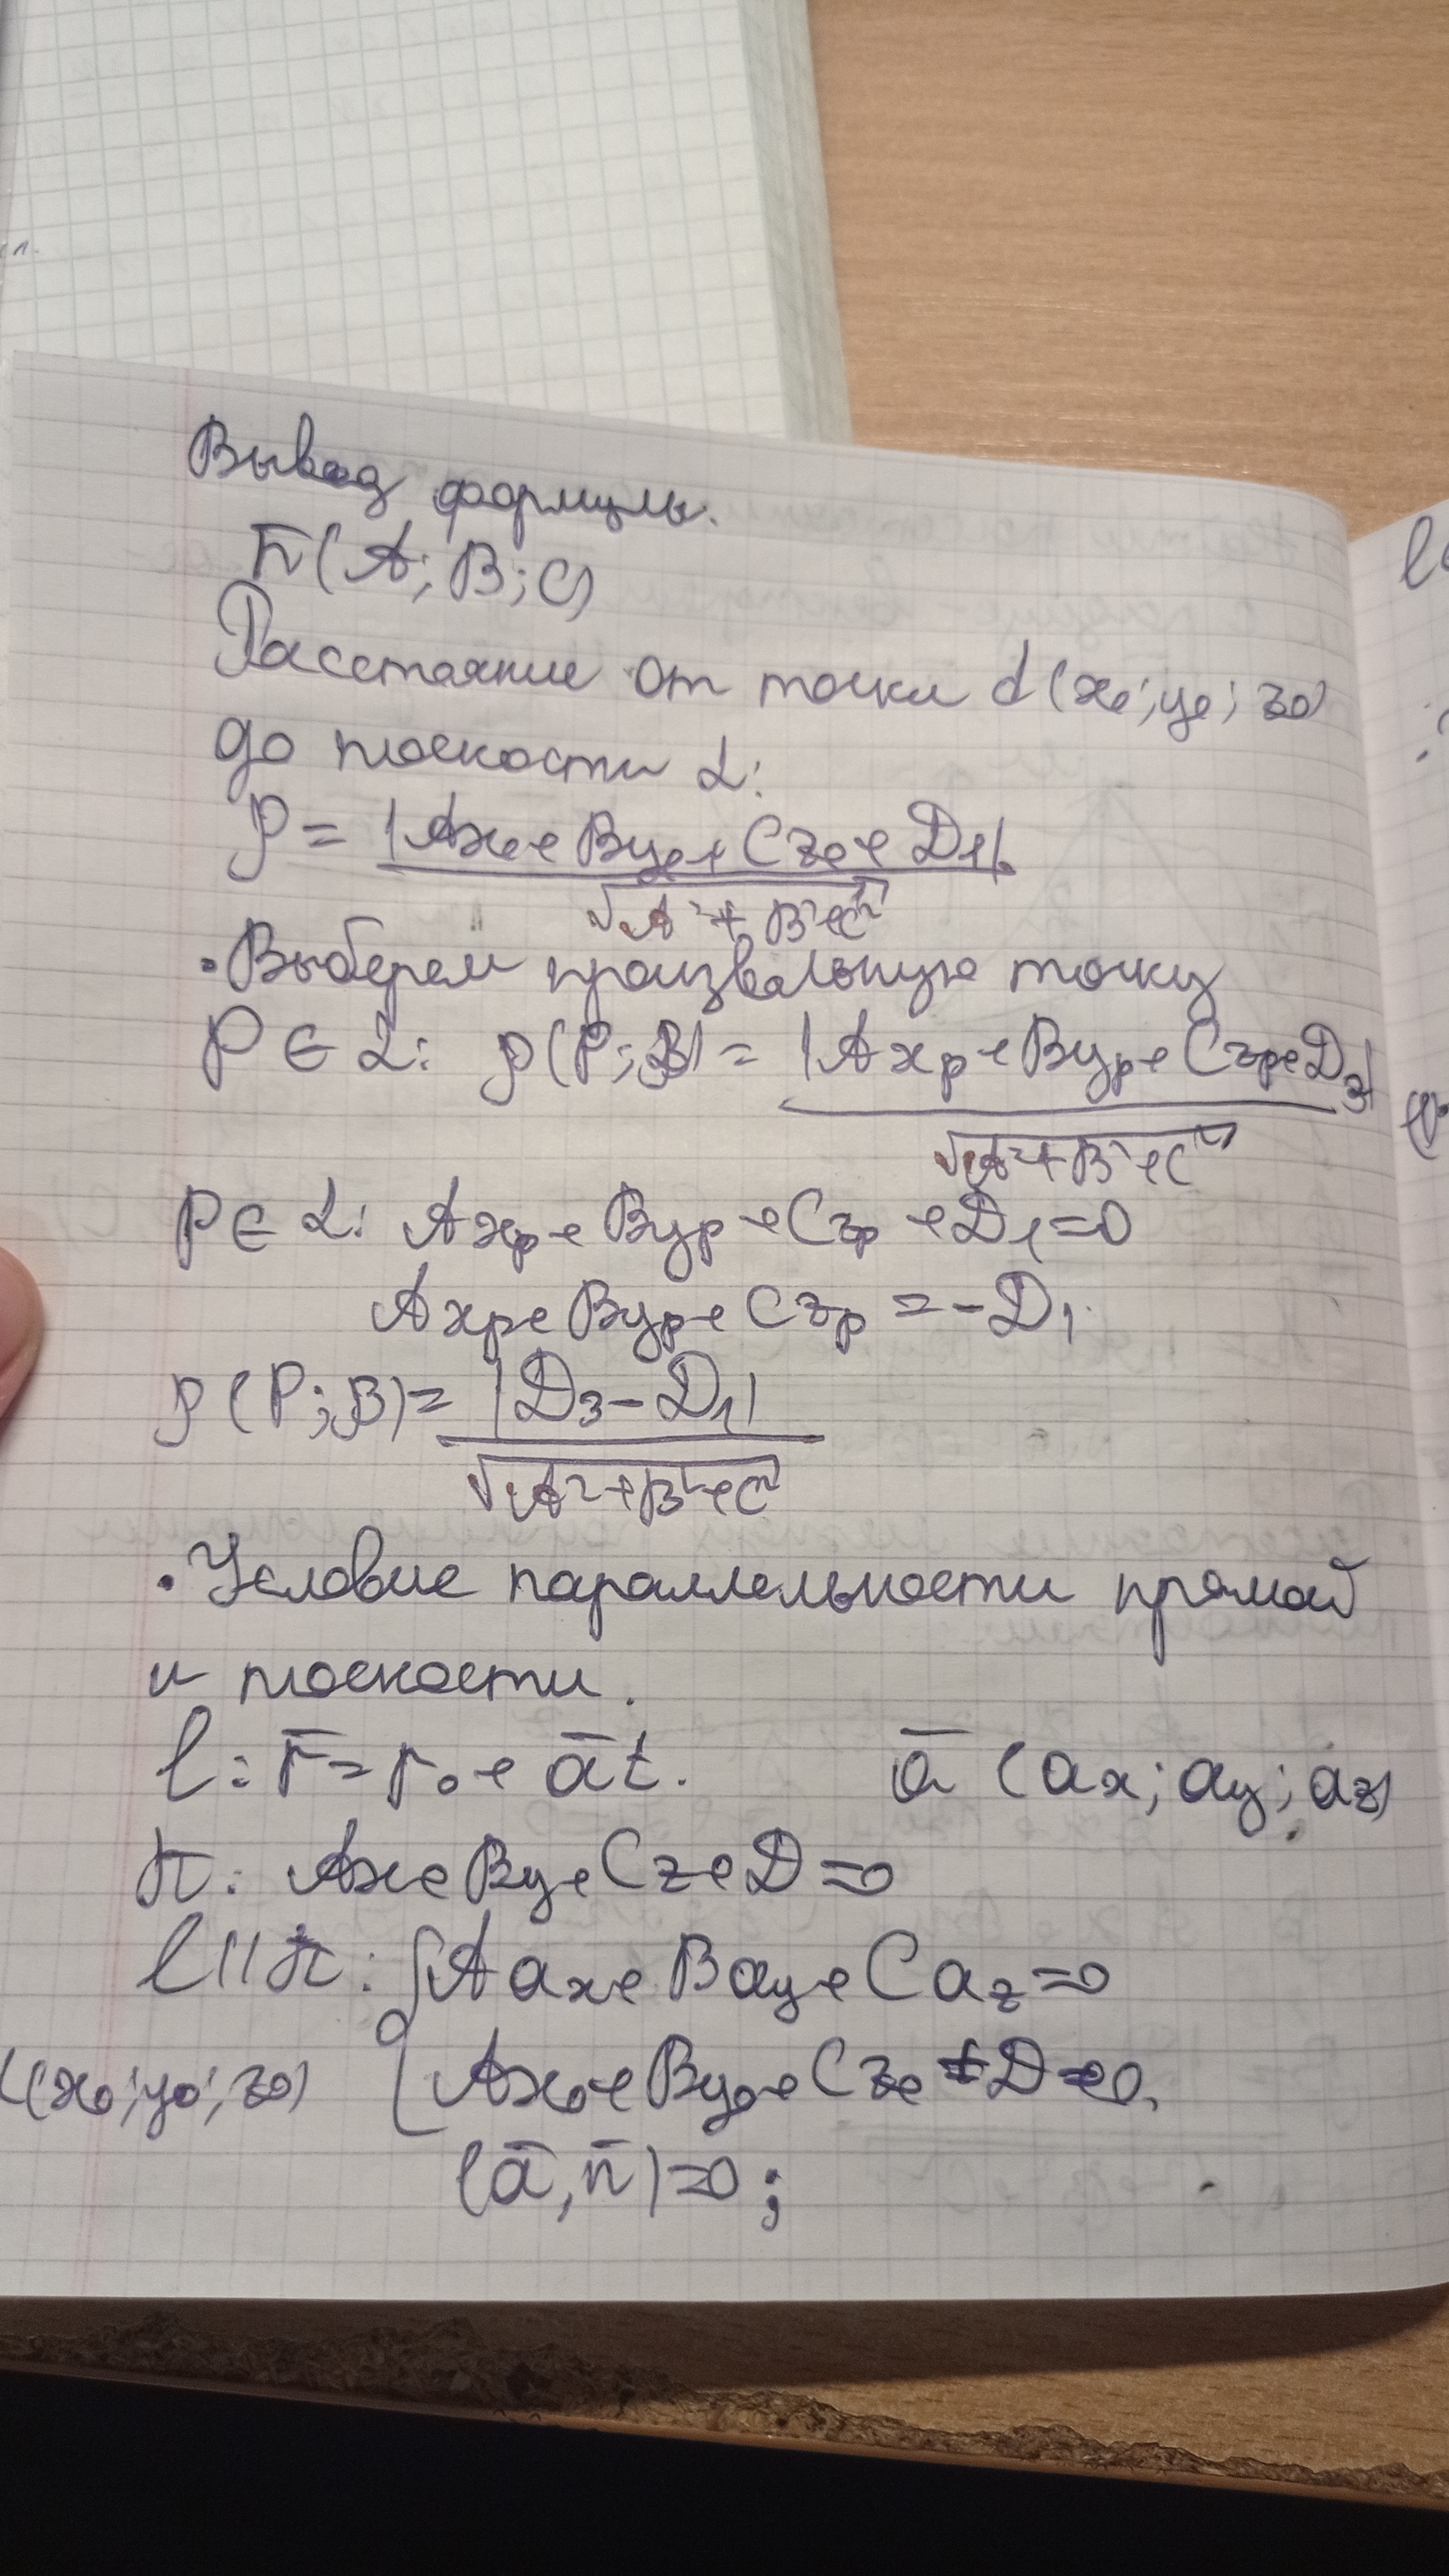 Вывод формулы.
n̄(A; B; C)
Расстояние от точки d(x₀; y₀; z₀)
до плоскости α:
ρ = |Ax₀ + By₀ + Cz₀ + D₁|
√A² + B² + C²
• Выберем произвольную точку
P ∈ α: ρ(P; β) = |Axₚ + Byₚ + Czₚ + D₃|
√A² + B² + C²
P ∈ α: Axₚ + Byₚ + Czₚ + D₁ = 0
Axₚ + Byₚ + Czₚ = -D₁
ρ(P; β) = |D₃ - D₁|
√A² + B² + C²
• Условие параллельности прямой
и плоскости.
l: r̄ = r₀ + āt. ā (aₓ; aᵧ; a_z)
π: Ax + By + Cz + D = 0
l || π: {Aaₓ + Baᵧ + Ca_z = 0
(x₀; y₀; z₀) Ax₀ + By₀ + Cz₀ + D ≠ 0.
(ā, n̄) = 0;